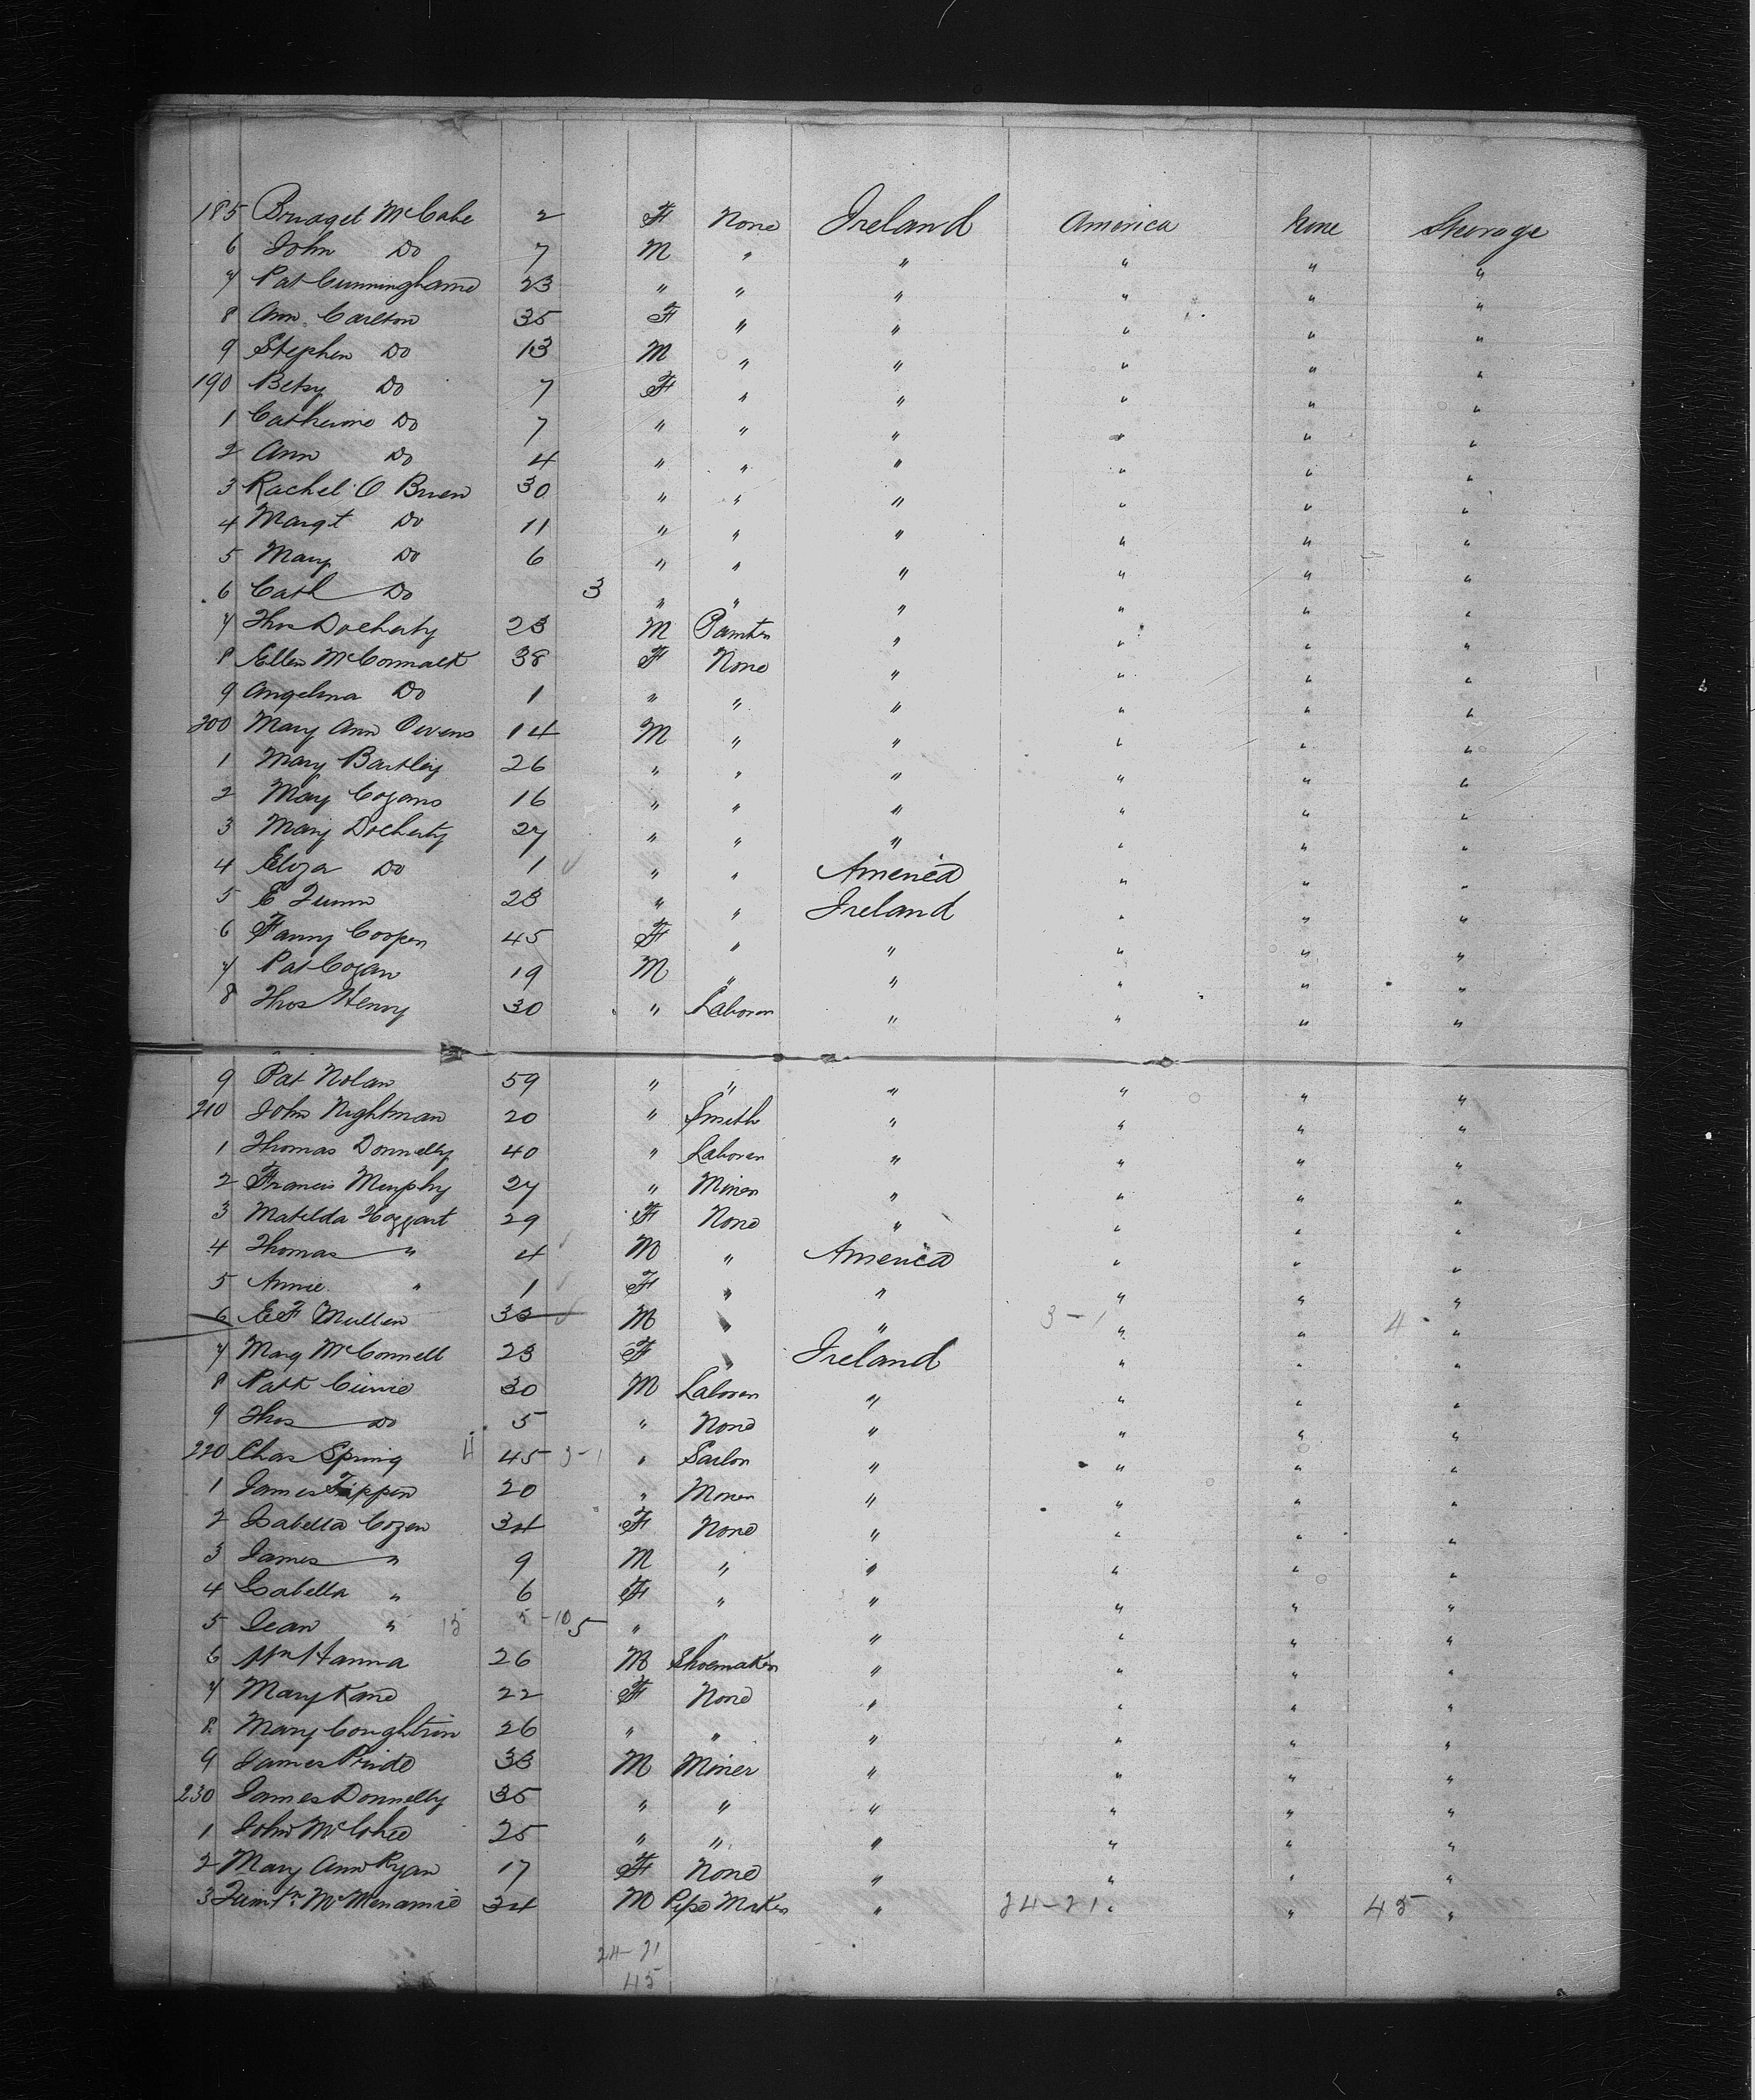 185 Bridget McCabe 2 F None Ireland America None Steerage
6 John Do 7 M " " " " "
7 Pat Cunninghame 23 " " " " " "
8 Ann Carlton 35 F " " " " "
9 Stephen Do 13 M " " " " "
190 Betsy Do 7 F " " " " "
1 Catherine Do 7 " " " " " "
2 Ann Do 4 " " " " " "
3 Rachel O Brien 30 " " " " " "
4 Margt Do 11 " " " " " "
5 Mary Do 6 " " " " " "
6 Cath Do 3 " " " " " "
7 Thos Docherty 23 M Painter " " " "
8 Ellen McCormack 38 F None " " " "
9 Angelina Do 1 " " " " " "
200 Mary Ann Owens 14 M " " " " "
1 Mary Bartley 26 " " " " " "
2 Mary Cogans 16 " " " " " "
3 Mary Docherty 27 " " " " " "
4 Eliza Do 1 " " America " " "
5 E Quinn 23 " " Ireland " " "
6 Fanny Cooper 45 F " " " " "
7 Pat Cogan 19 M " " " " "
8 Thos Henry 30 " Laborer " " " "
9 Pat Nolan 59 " " " " " "
210 John Nightman 20 " Smith " " " "
1 Thomas Donnelly 40 " Laborer " " " "
2 Francis Murphy 27 " Miner " " " "
3 Matilda Hoggart 29 F None " " " "
4 Thomas " 4 M " America " " "
5 Annie " 1 F " " " " "
6 E F Mullen 33 M " " 3-1 " " 4 "
7 Marg McConnell 23 F " Ireland " " "
8 Patk Currie 30 M Laborer " " " "
9 Thos Do 5 " None " " " "
220 Chas Spring 4 45 3-1 " Sailor " " " "
1 James Tappen 20 " Moner " " " "
2 Isabella Cozen 34 F None " " " "
3 James " 9 M " " " " "
4 Isabella " 6 F " " " " "
5 Jean " 15 5-10 5 " " " " " "
6 Wm Hanna 26 M Shoemaker " " " "
7 Mary Kane 22 F None " " " "
8 Mary Coughtrin 26 " " " " " "
9 James Pride 33 M Miner " " " "
230 James Donnelly 35 " " " " " "
1 John McGhee 25 " " " " " "
2 Mary Ann Ryan 17 F None " " " "
3 McMenamie 34 M Pipe Maker " 24-21 " " 45 "
24-21
45